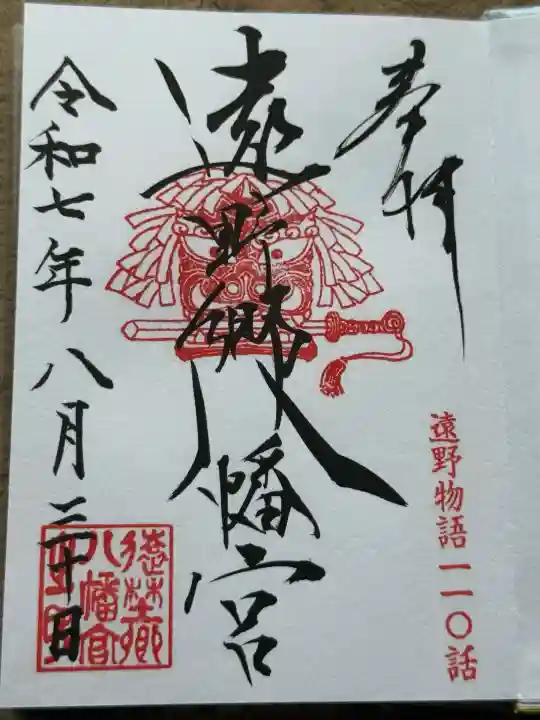 奉拝
遠野物語一一〇話
遠野郷八幡宮
令和七年八月二十日
遠野郷
八幡宮